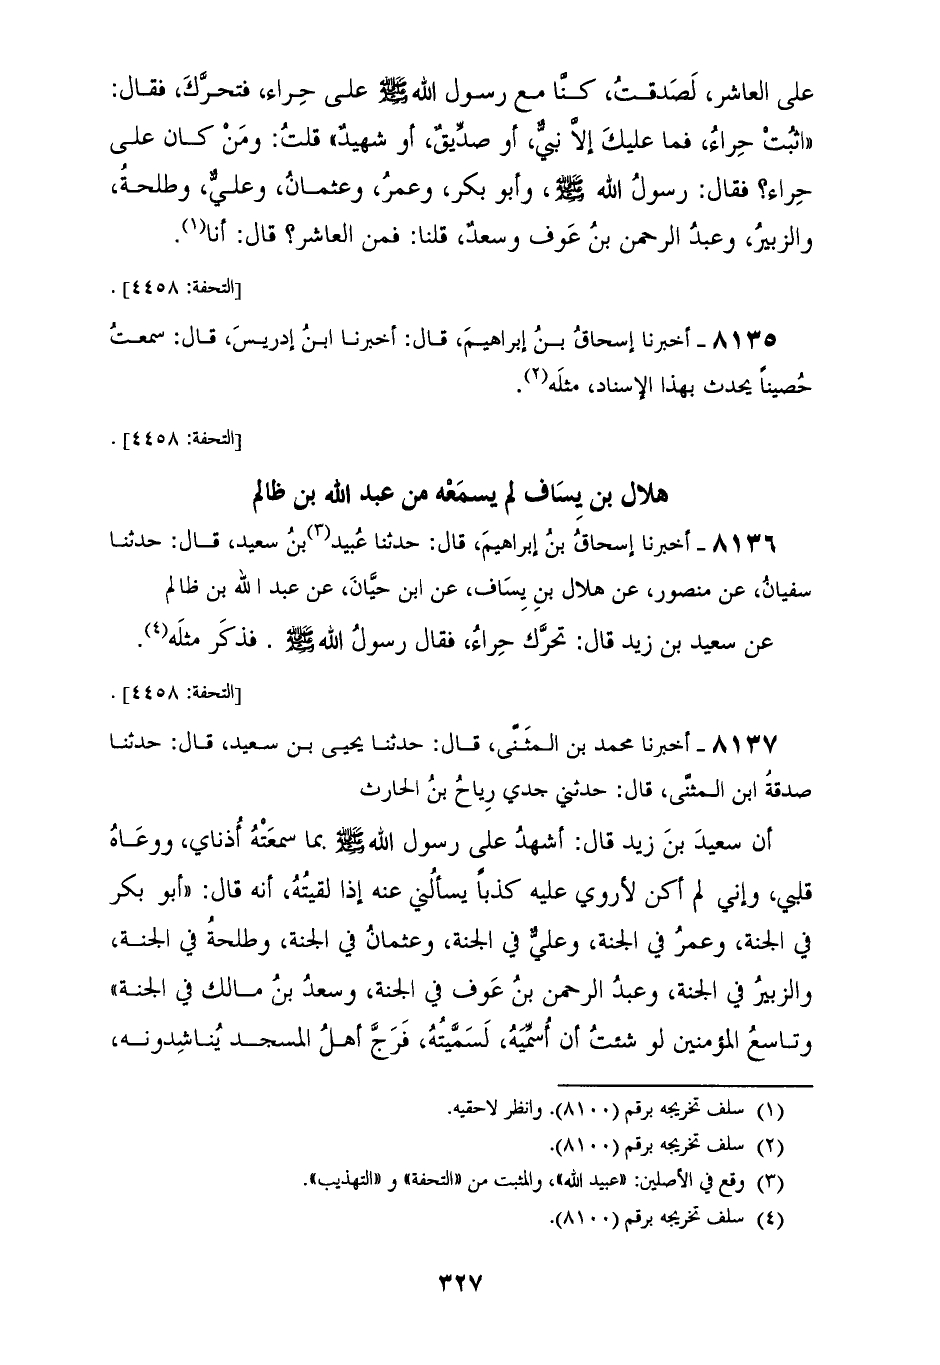 على العاشر، لَصَدقتُ، كنَّا مع رسول الله ﷺ على حِراء، فتحرَّكَ، فقال:
«اثبُتْ حِراءُ، فما عليكَ إلاَّ نبيٌّ، أو صدِّيقٌ، أو شهيدٌ» قلتُ: ومَنْ كان على
حِراء؟ فقال: رسولُ الله ﷺ، وأبو بكر، وعمرُ، وعثمانُ، وعليٌّ، وطلحةُ،
والزبيرُ، وعبدُ الرحمن بنُ عَوف وسعدٌ، قلنا: فمن العاشر؟ قال: أنا(١).
[التحفة: ٤٤٥٨].
٨١٣٥ ـ أخبرنا إسحاقُ بنُ إبراهيمَ، قال: أخبرنا ابنُ إدريسَ، قال: سمعتُ
حُصيناً يحدث بهذا الإسناد، مثلَه(٢).
[التحفة: ٤٤٥٨].
هلال بن يِسَاف لم يسمَعْه من عبد الله بن ظالم
٨١٣٦ ـ أخبرنا إسحاقُ بنُ إبراهيمَ، قال: حدثنا عُبيد(٣)بنُ سعيد، قال: حدثنا
سفيانُ، عن منصور، عن هلال بنِ يِسَاف، عن ابن حيَّانَ، عن عبد الله بن ظالم
عن سعيد بن زيد قال: تحرَّك حِراءُ، فقال رسولُ الله ﷺ . فذكَر مثلَه(٤).
[التحفة: ٤٤٥٨].
٨١٣٧ ـ أخبرنا محمد بن المثَنَّى، قال: حدثنا يحيى بن سعيد، قال: حدثنا
صدقةُ ابن المثنَّى، قال: حدثني جدي رِياحُ بنُ الحارث
أن سعيدَ بنَ زيد قال: أشهدُ على رسول الله ﷺ بما سمعَتْهُ أُذناي، ووعَاهُ
قلبي، وإني لم أكن لأروي عليه كذباً يسألُني عنه إذا لقيتُهُ، أنه قال: «أبو بكر
في الجنة، وعمرُ في الجنة، وعليٌّ في الجنة، وعثمانُ في الجنة، وطلحةُ في الجنة،
والزبيرُ في الجنة، وعبدُ الرحمن بنُ عَوف في الجنة، وسعدُ بنُ مالك في الجنة»
وتاسعُ المؤمنين لو شئتُ أن أُسمِّيَهُ، لَسَمَّيتُهُ، فَرَجَّ أهلُ المسجد يُناشِدونه،
(١) سلف تخريجه برقم (٨١٠٠). وانظر لاحقيه.
(٢) سلف تخريجه برقم (٨١٠٠).
(٣) وقع في الأصلين: «عبيد الله»، والمثبت من «التحفة» و «التهذيب».
(٤) سلف تخريجه برقم (٨١٠٠).
٣٢٧